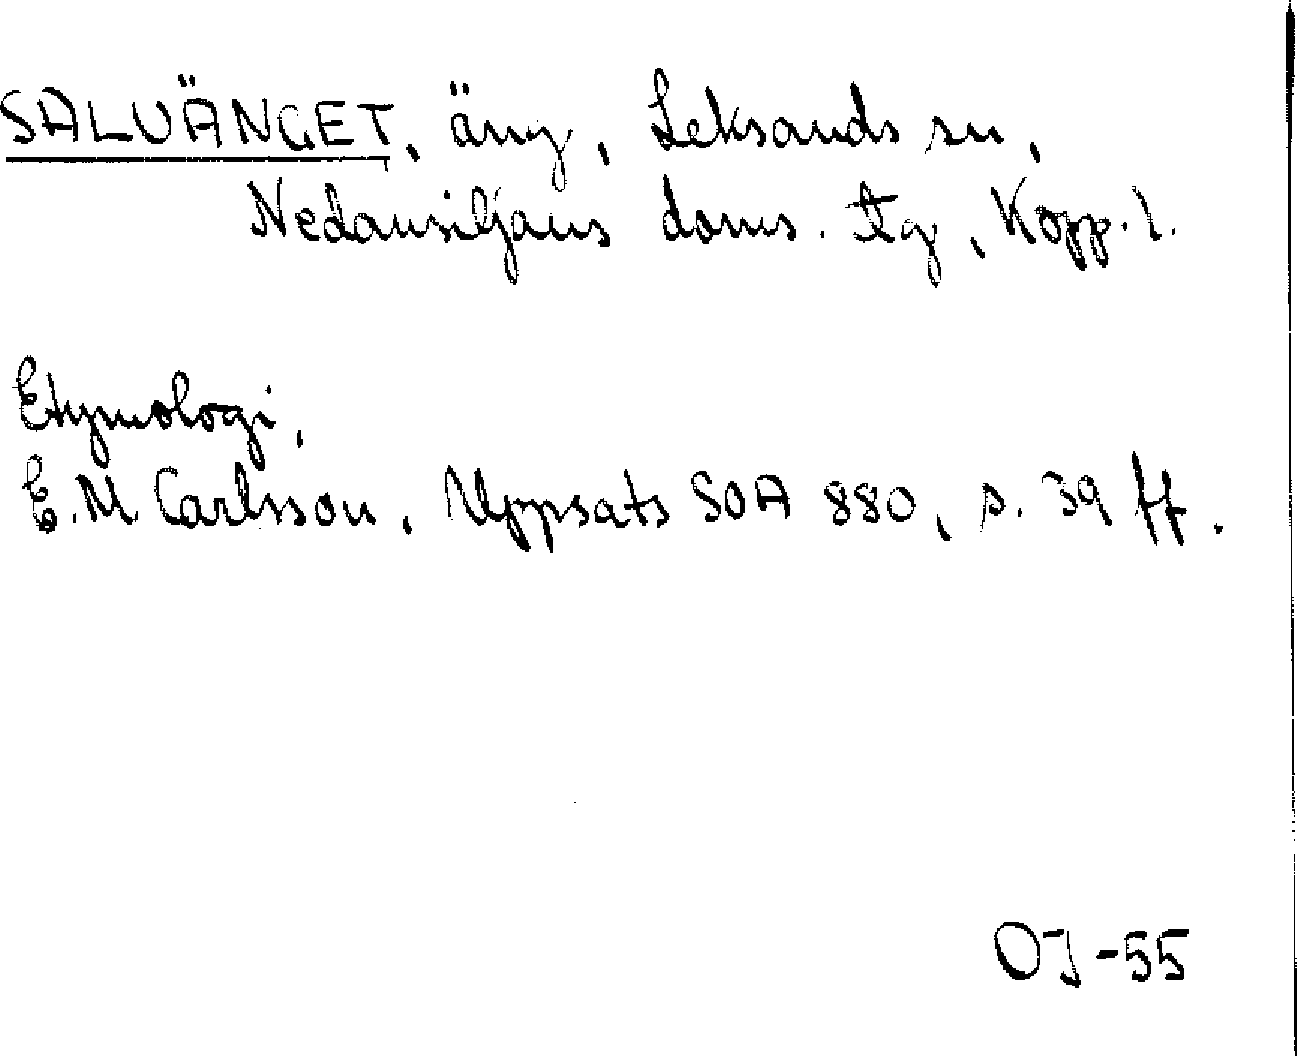 SALUÄNGET, äng, Leksands sn,
Nedansiljans doms. tg, Kopp. l.
Etymologi,
E. M. Carlsson, Uppsats SOA 880, s. 39 ff.
OJ-55